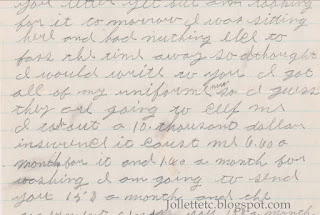 your letter yet but am looking
for it to morrow I was sitting
here and had nutthing else to
pass the time away so I thought
I would write to you I got
all of my uniform now so I guess
they are going to keep me
I out a 10. thousand dollar
insurence it coust me 6.60 a
month for it and 1.40 a month for
washing I am going to send
you 15 $ a month and the
month
Jollettetc.blogspot.com